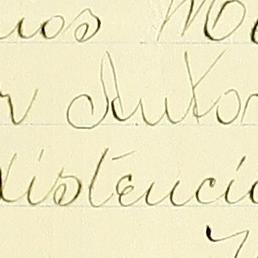 uos Me
r Anto
xistencia